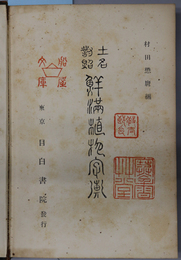 村田懋麿編
土名
對照
鮮滿植物字彙
東京 目白書院發行